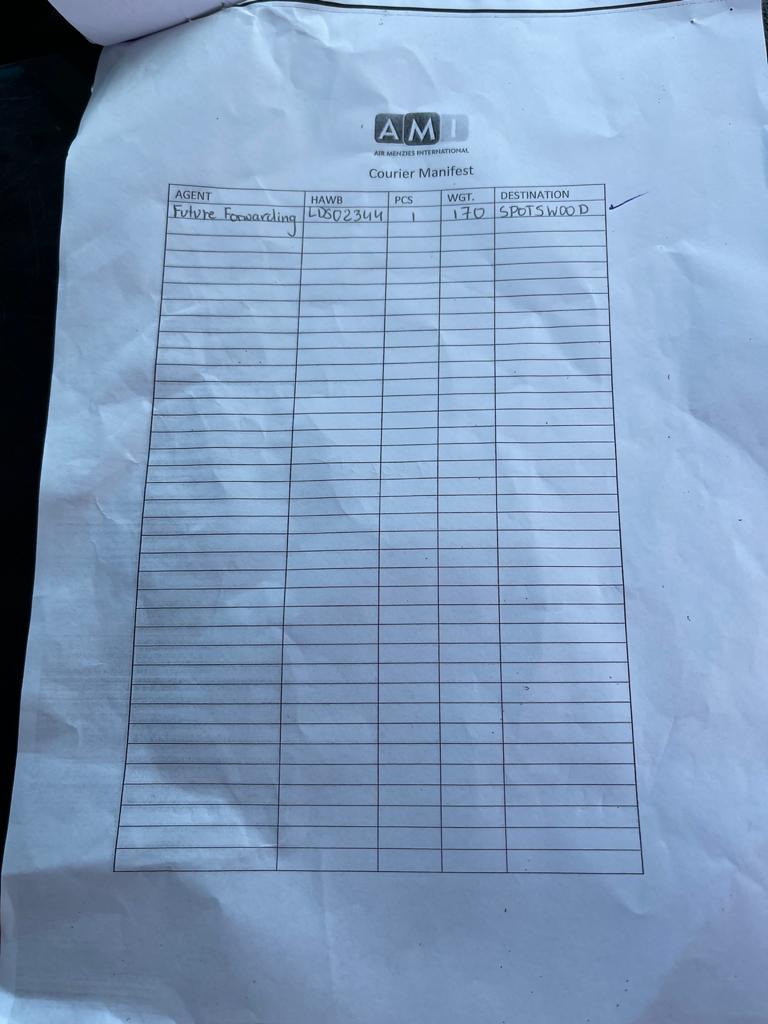 AMI
AIR MENZIES INTERNATIONAL
Courier Manifest
AGENT HAWB PCS WGT. DESTINATION
Future Forwarding LDS02344 1 170 SPOTSWOOD